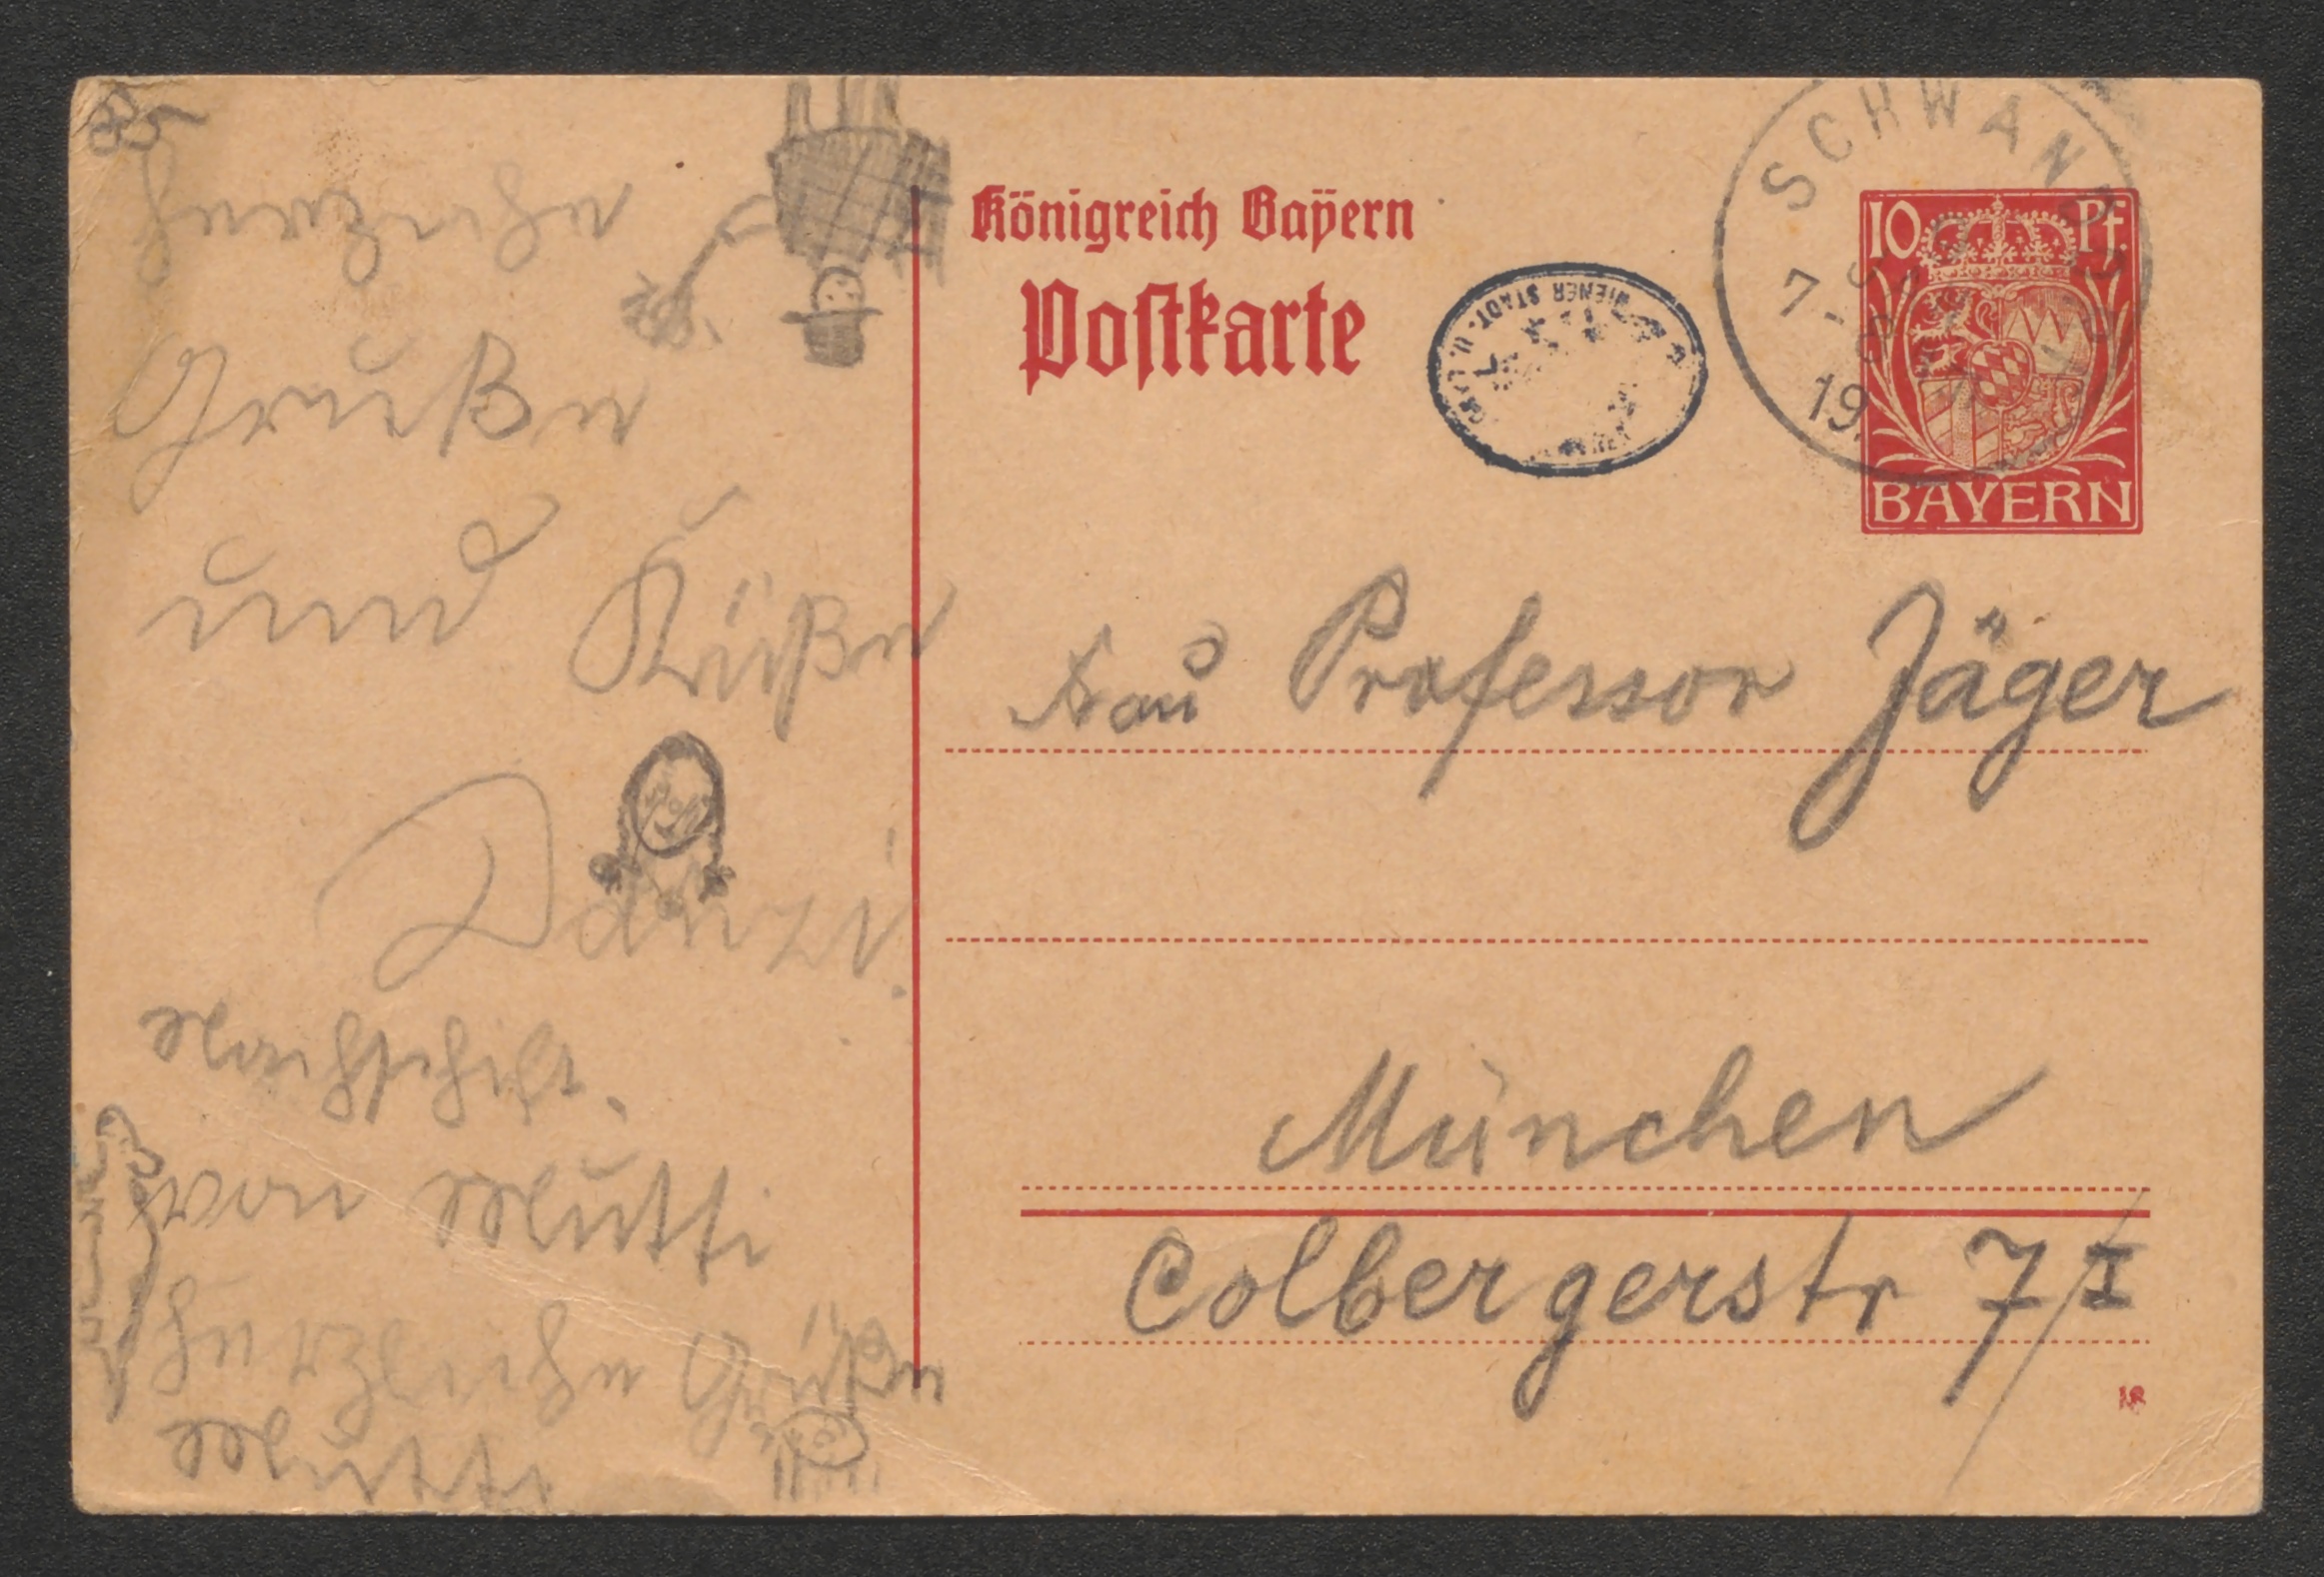 herzliche
Grüße
und Küße
Danzi.
Nachschift.
von Mutti
herzliche Grüße
Mutti
Königreich Bayern
Postkarte
WIENER STADT- U.
SCHWANDORF
7-8
19.
10 Pf.
BAYERN
Frau Professor Jäger
München
Colbergerstr 7/I